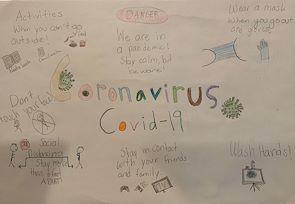 Activities
When you can't go
outside!
DANGER
We are in
a pandemic!
Stay calm, but
be aware!
Wear a mask
when you go out
Coronavirus
Covid-19
Don't
touch your face!
Social
Distancing
Stay more
than 6 feet
APART!
Stay in contact
with your friends
and family
Wash Hands!